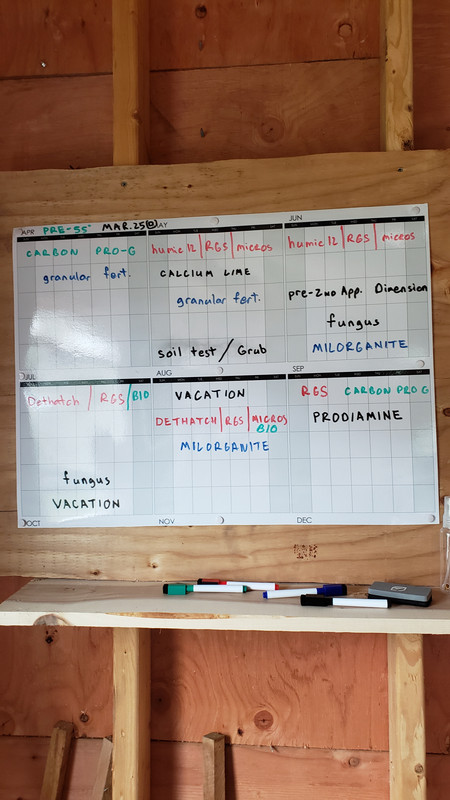 APR PRE-55° MAR.25 AY
JUN
CARBON PRO-G
humic 12 | RGS | micros
humic 12 | RGS | micros
granular fert.
CALCIUM LIME
granular fert.
pre-2ND App. Dimension
fungus
soil test / Grub
MILORGANITE
JUL
AUG
SEP
Dethatch / RGS / BIO
VACATION
RGS CARBON PRO G
DETHATCH | RGS | MICROS
BIO
PRODIAMINE
MILORGANITE
fungus
VACATION
OCT
NOV
DEC